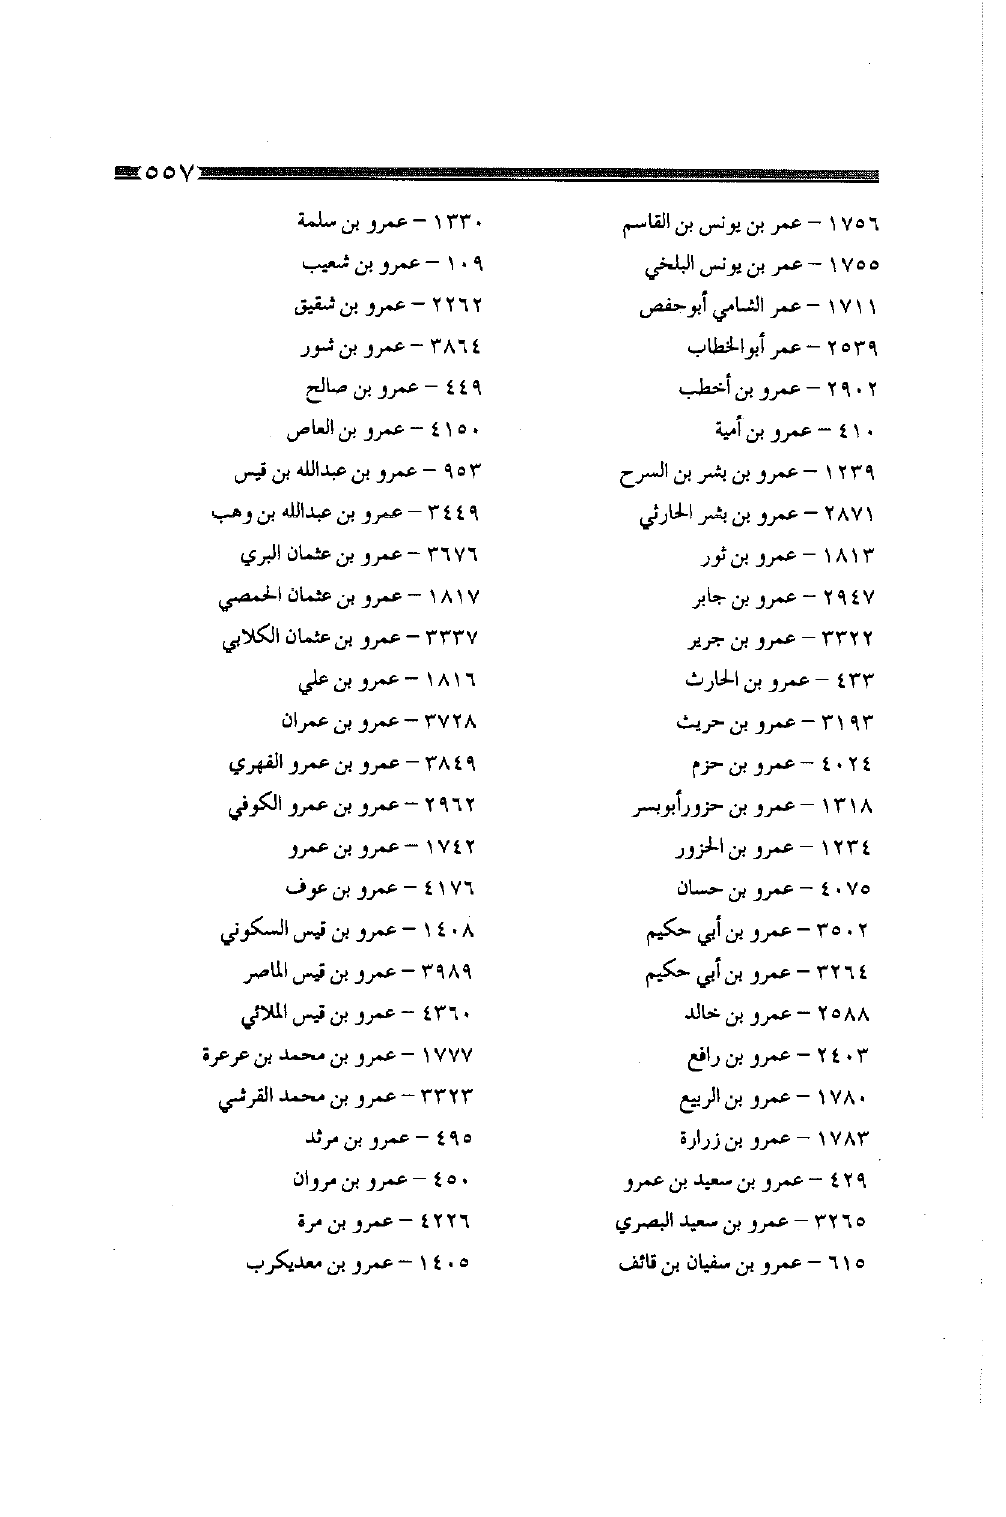 ٥٥٧
١٧٥٦ – عمر بن يونس بن القاسم
١٧٥٥ – عمر بن يونس البلخي
١٧١١ – عمر الشامي أبوحفص
٢٥٣٩ – عمر أبوالخطاب
٢٩٠٢ – عمرو بن أخطب
٤١٠ – عمرو بن أمية
١٢٣٩ – عمرو بن بشر بن السرح
٢٨٧١ – عمرو بن بشر الحارثي
١٨١٣ – عمرو بن ثور
٢٩٤٧ – عمرو بن جابر
٣٣٢٢ – عمرو بن جرير
٤٣٣ – عمرو بن الحارث
٣١٩٣ – عمرو بن حريث
٤٠٢٤ – عمرو بن حزم
١٣١٨ – عمرو بن حزورأبوبسر
١٢٣٤ – عمرو بن الحزور
٤٠٧٥ – عمرو بن حسان
٣٥٠٢ – عمرو بن أبي حكيم
٣٢٦٤ – عمرو بن أبي حكيم
٢٥٨٨ – عمرو بن خالد
٢٤٠٣ – عمرو بن رافع
١٧٨٠ – عمرو بن الربيع
١٧٨٣ – عمرو بن زرارة
٤٢٩ – عمرو بن سعيد بن عمرو
٣٢٦٥ – عمرو بن سعيد البصري
٦١٥ – عمرو بن سفيان بن قائف
١٣٣٠ – عمرو بن سلمة
١٠٩ – عمرو بن شعيب
٢٢٦٢ – عمرو بن شقيق
٣٨٦٤ – عمرو بن شور
٤٤٩ – عمرو بن صالح
٤١٥٠ – عمرو بن العاص
٩٥٣ – عمرو بن عبدالله بن قيس
٣٤٤٩ – عمرو بن عبدالله بن وهب
٣٦٧٦ – عمرو بن عثمان البري
١٨١٧ – عمرو بن عثمان الحمصي
٣٣٣٧ – عمرو بن عثمان الكلابي
١٨١٦ – عمرو بن علي
٣٧٢٨ – عمرو بن عمران
٣٨٤٩ – عمرو بن عمرو الفهري
٢٩٦٢ – عمرو بن عمرو الكوفي
١٧٤٢ – عمرو بن عمرو
٤١٧٦ – عمرو بن عوف
١٤٠٨ – عمرو بن قيس السكوني
٣٩٨٩ – عمرو بن قيس الماصر
٤٣٦٠ – عمرو بن قيس الملائي
١٧٧٧ – عمرو بن محمد بن عرعرة
٣٣٢٣ – عمرو بن محمد القرشي
٤٩٥ – عمرو بن مرثد
٤٥٠ – عمرو بن مروان
٤٢٢٦ – عمرو بن مرة
١٤٠٥ – عمرو بن معديكرب